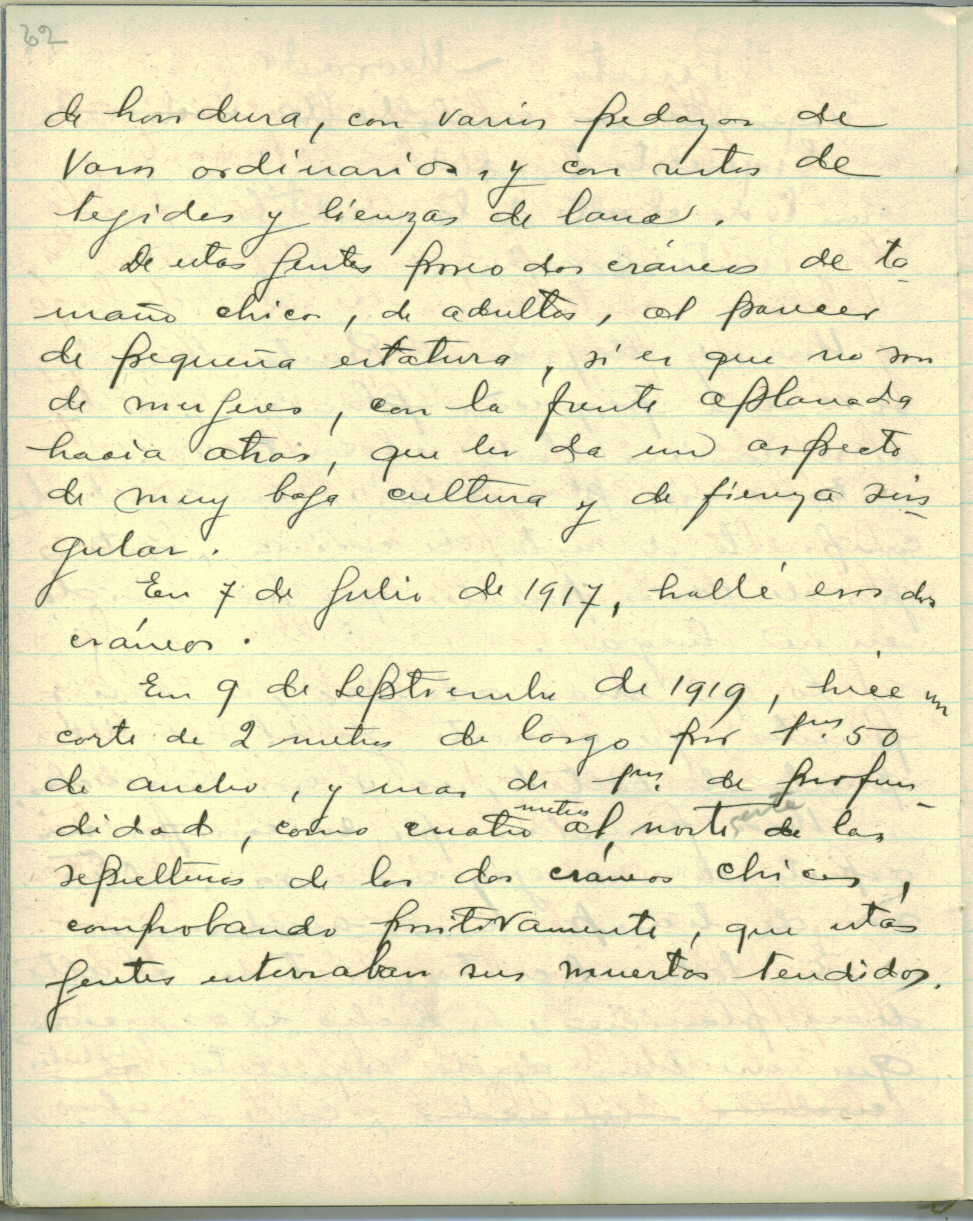 32
de hondura, con varios pedazos de
vasos ordinarios, y con restos de
tejidos y lienzas de lana.
De estas gentes poseo dos cráneos de ta-
maño chico, de adultos, al parecer
de pequeña estatura, si es que no son
de mujeres, con la frente aplanada
hacia atras, que les da un aspecto
de muy baja cultura y de fiereza sin-
gular.
En 7 de Julio de 1917, hallé esos dos
cráneos.
En 9 de Septiembre de 1919, hice un
corte de 2 metros de largo por 1m. 50
de ancho, y mas de 1m. de profun-
didad, como cuatro metros al norte de las
sepulturas de los dos cráneos chicos,
comprobando positivamente, que estas
gentes enterraban sus muertos tendidos.